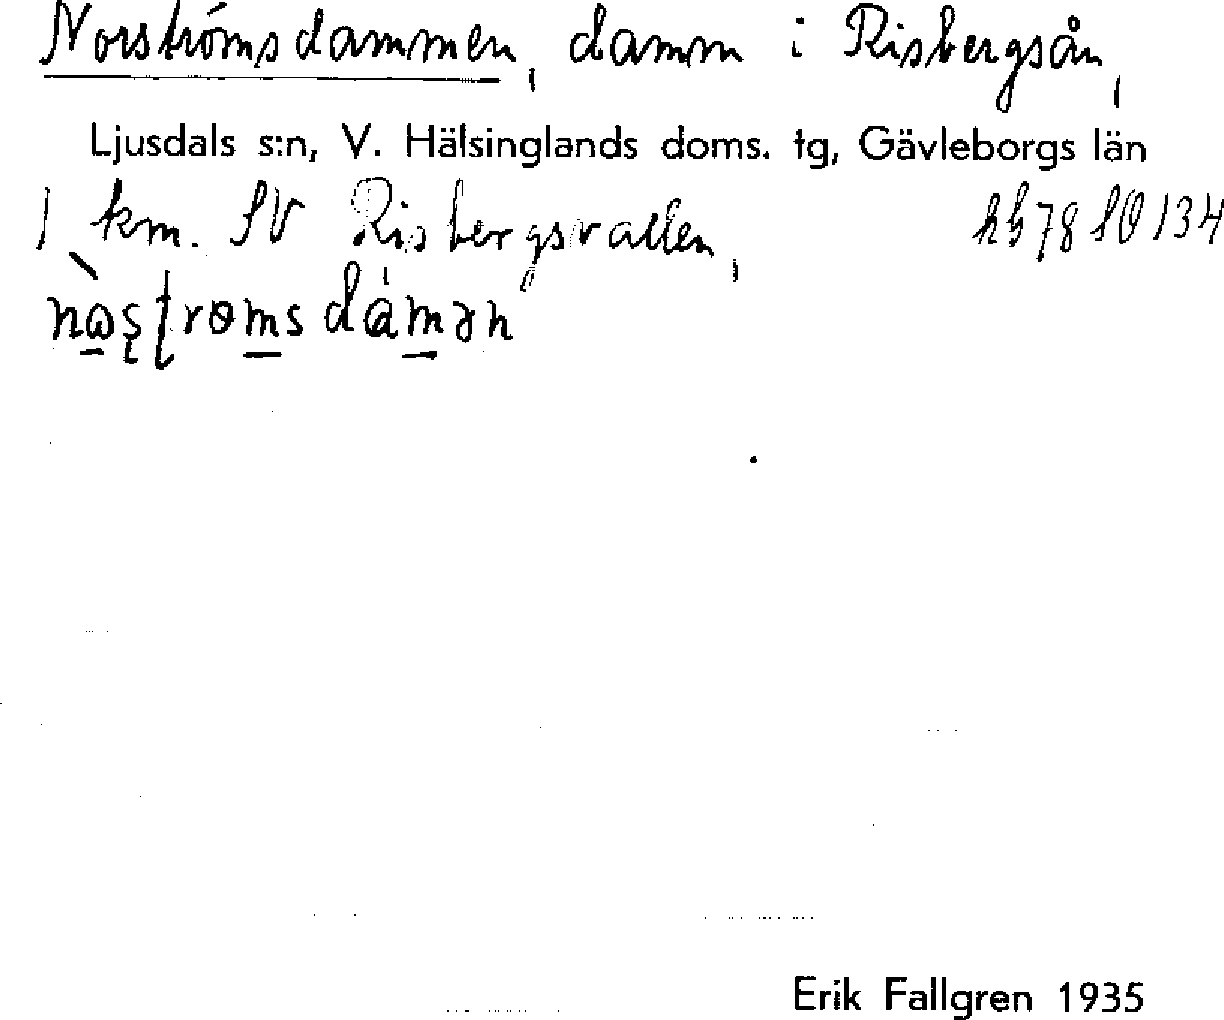 Norströmsdammen, damm i Risbergsån,
Ljusdals s:n, V. Hälsinglands doms. tg, Gävleborgs län
1 km. SV Risbergsvallen,
Erik Fallgren 1935